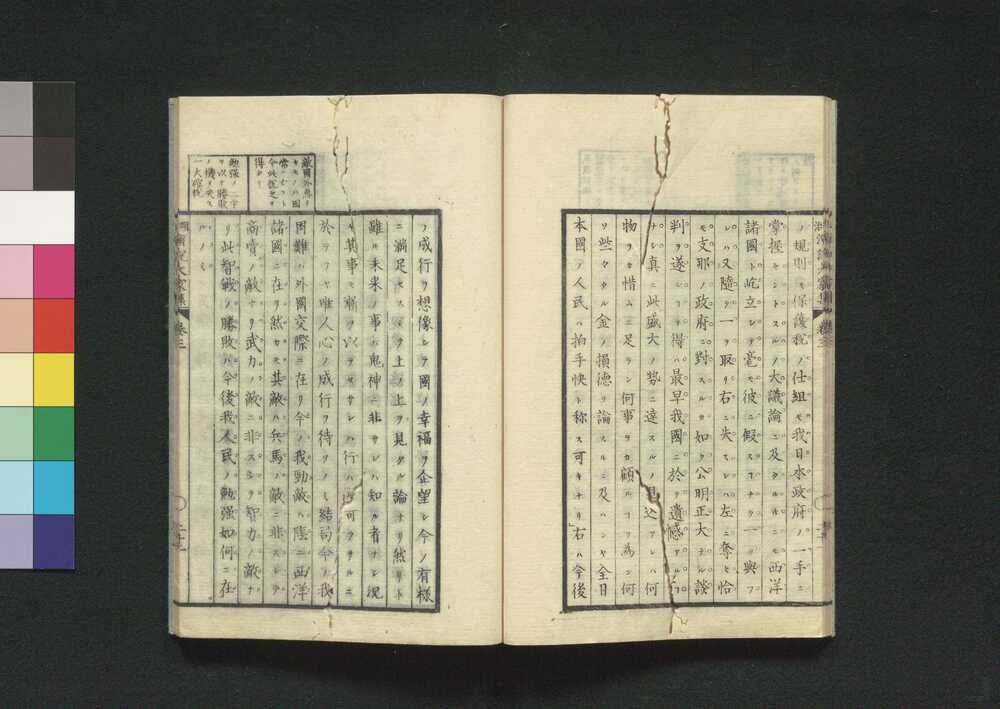 ノ規則モ保護税ノ仕組モ我日本政府ノ一手ニ
掌握セントスルノ大議論ニ及タルニモ西洋
諸國ト屹立シテ毫モ彼ニ假スヿナク一ヲ與フ
レハ又隨テ一ヲ取リ右ニ失スレハ左ニ奪ヒ恰
モ支那ノ政府ニ對スルカ如ク公明正大ナル談
判ヲ遂シヿヲ得ハ最早我國ニ於テ遺感アル
ナシ真ニ此盛大ノ勢ニ達スルノ見込アレハ何
物ヲカ惜ムニ足ラン何事ヲカ顧ルヿヲ為ン何
ソ些々タル金ノ損德ヲ論スルニ及ハンヤ全日
本國ノ人民ハ拍手快ト称ス可キナリ右ハ今後
ノ成行ヲ想像シテ國ノ幸福ヲ企望シ今ノ有様
ニ満足セスシテ上ノ上ヲ見タル論ナリ然リト
雖ㇺ未来ノ事ハ鬼神ニ非サレハ知ル者ナシ況
ヤ其事ニ慚ヲ以テセサレハ行ハル可ラサルニ
於テヲヤ唯人心ノ成行ヲ待ツノミ結局今ノ我
困難ハ外國交際ニ在リ今ノ我勁敵ハ隱ニ西洋
諸國ニ在リ然カモ其敵ハ兵馬ノ敵ニ非スシテ
商賣ノ敵ナリ武力ノ敵ニ非スシテ智力ノ敵ナ
リ此智戰ノ勝敗ハ今後我人民ノ勉强如何ニ在
ルノミ
敵國外患
勉强ノ二字
卷三